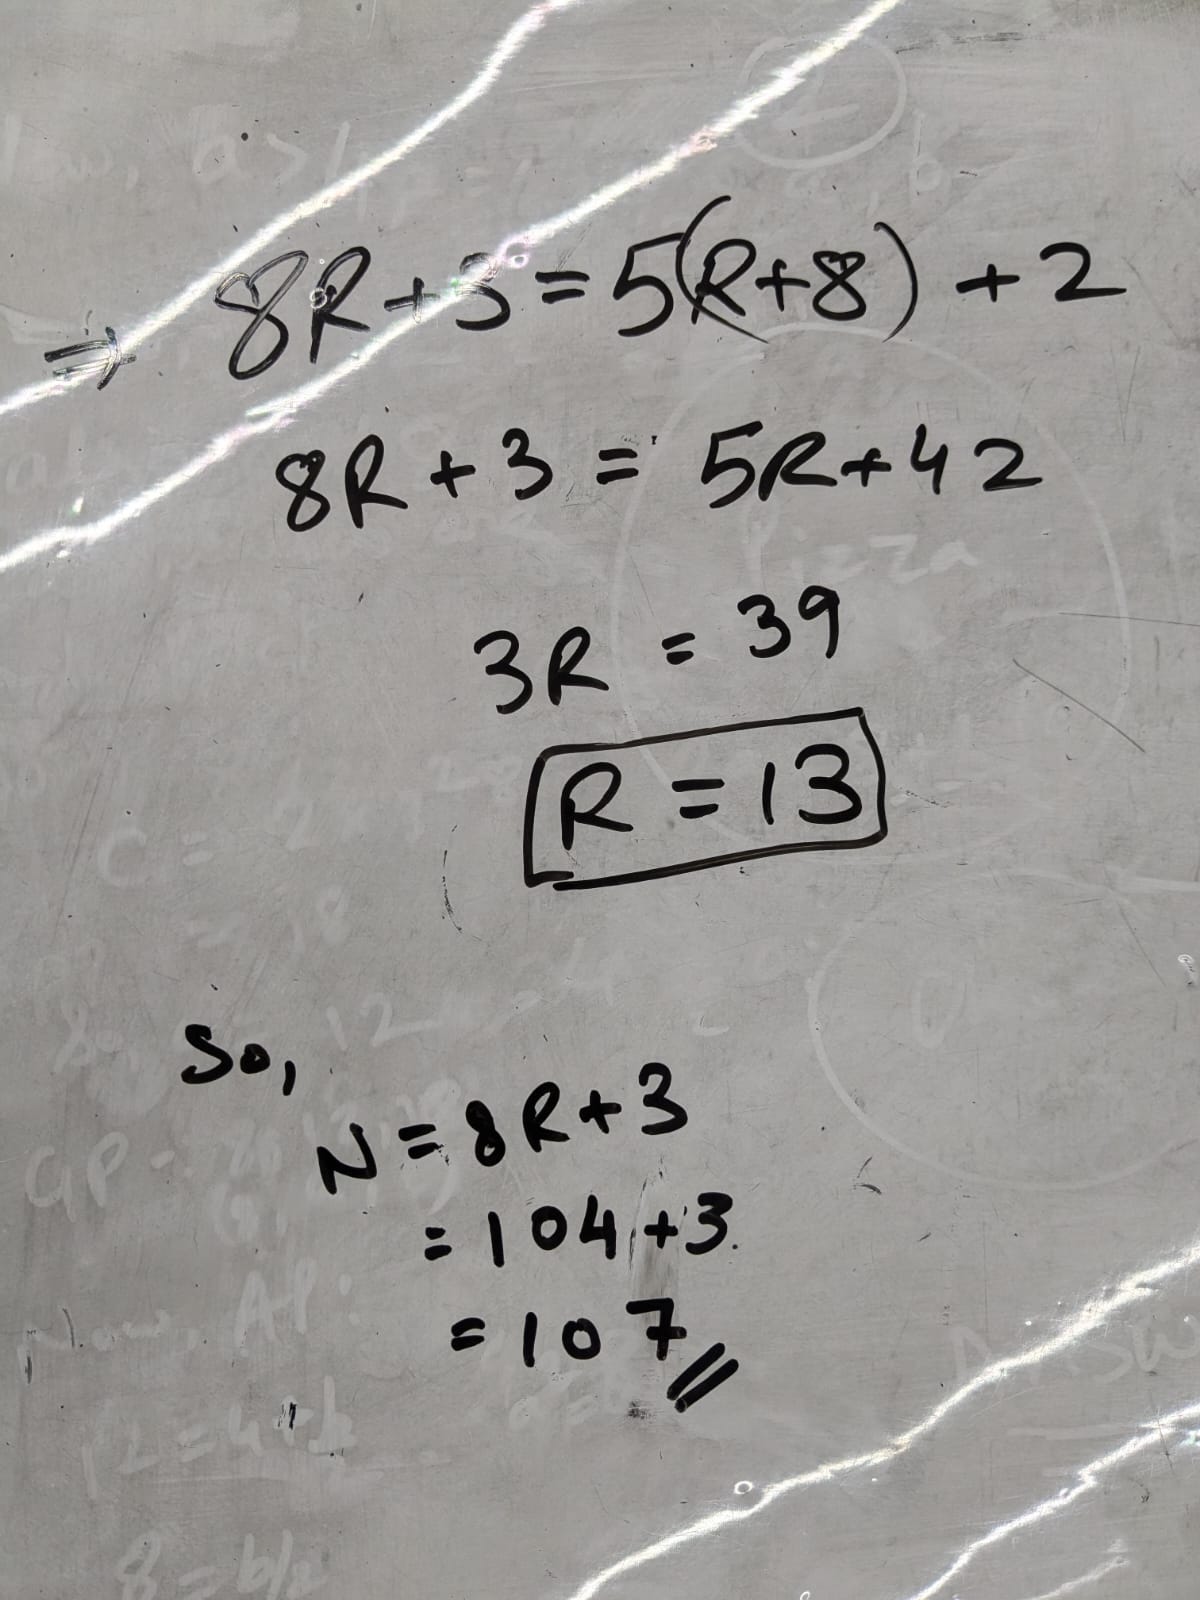 ⇒ 8R+3=5(R+8)+2
8R+3=5R+42
3R=39
R=13
So,
N=8R+3
=104+3.
=107